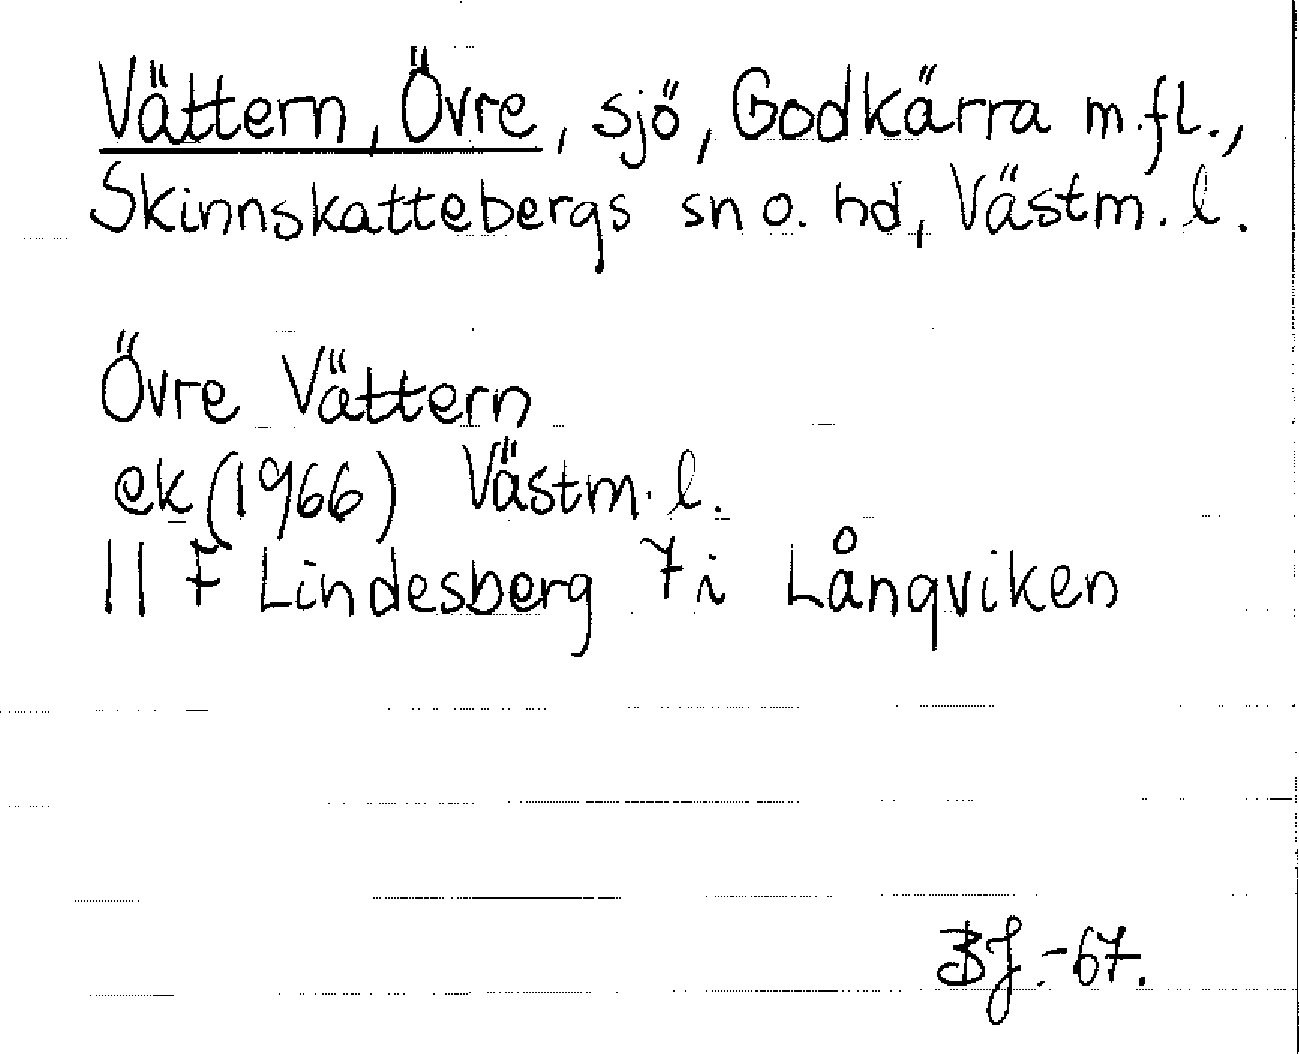 Vättern, Övre, sjö, Godkärra m.fl.,
Skinnskattebergs sn o. hd, Västm. l.
Övre Vättern
ek (1966) Västm. l.
11 F Lindesberg 7i Långviken
BJ.-67.